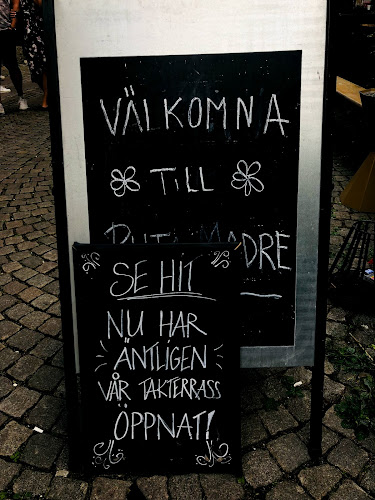 VÄLKOMNA
TILL
PUTA MADRE
SE HIT
NU HAR
ÄNTLIGEN
VÅR TAKTERRASS
ÖPPNAT!